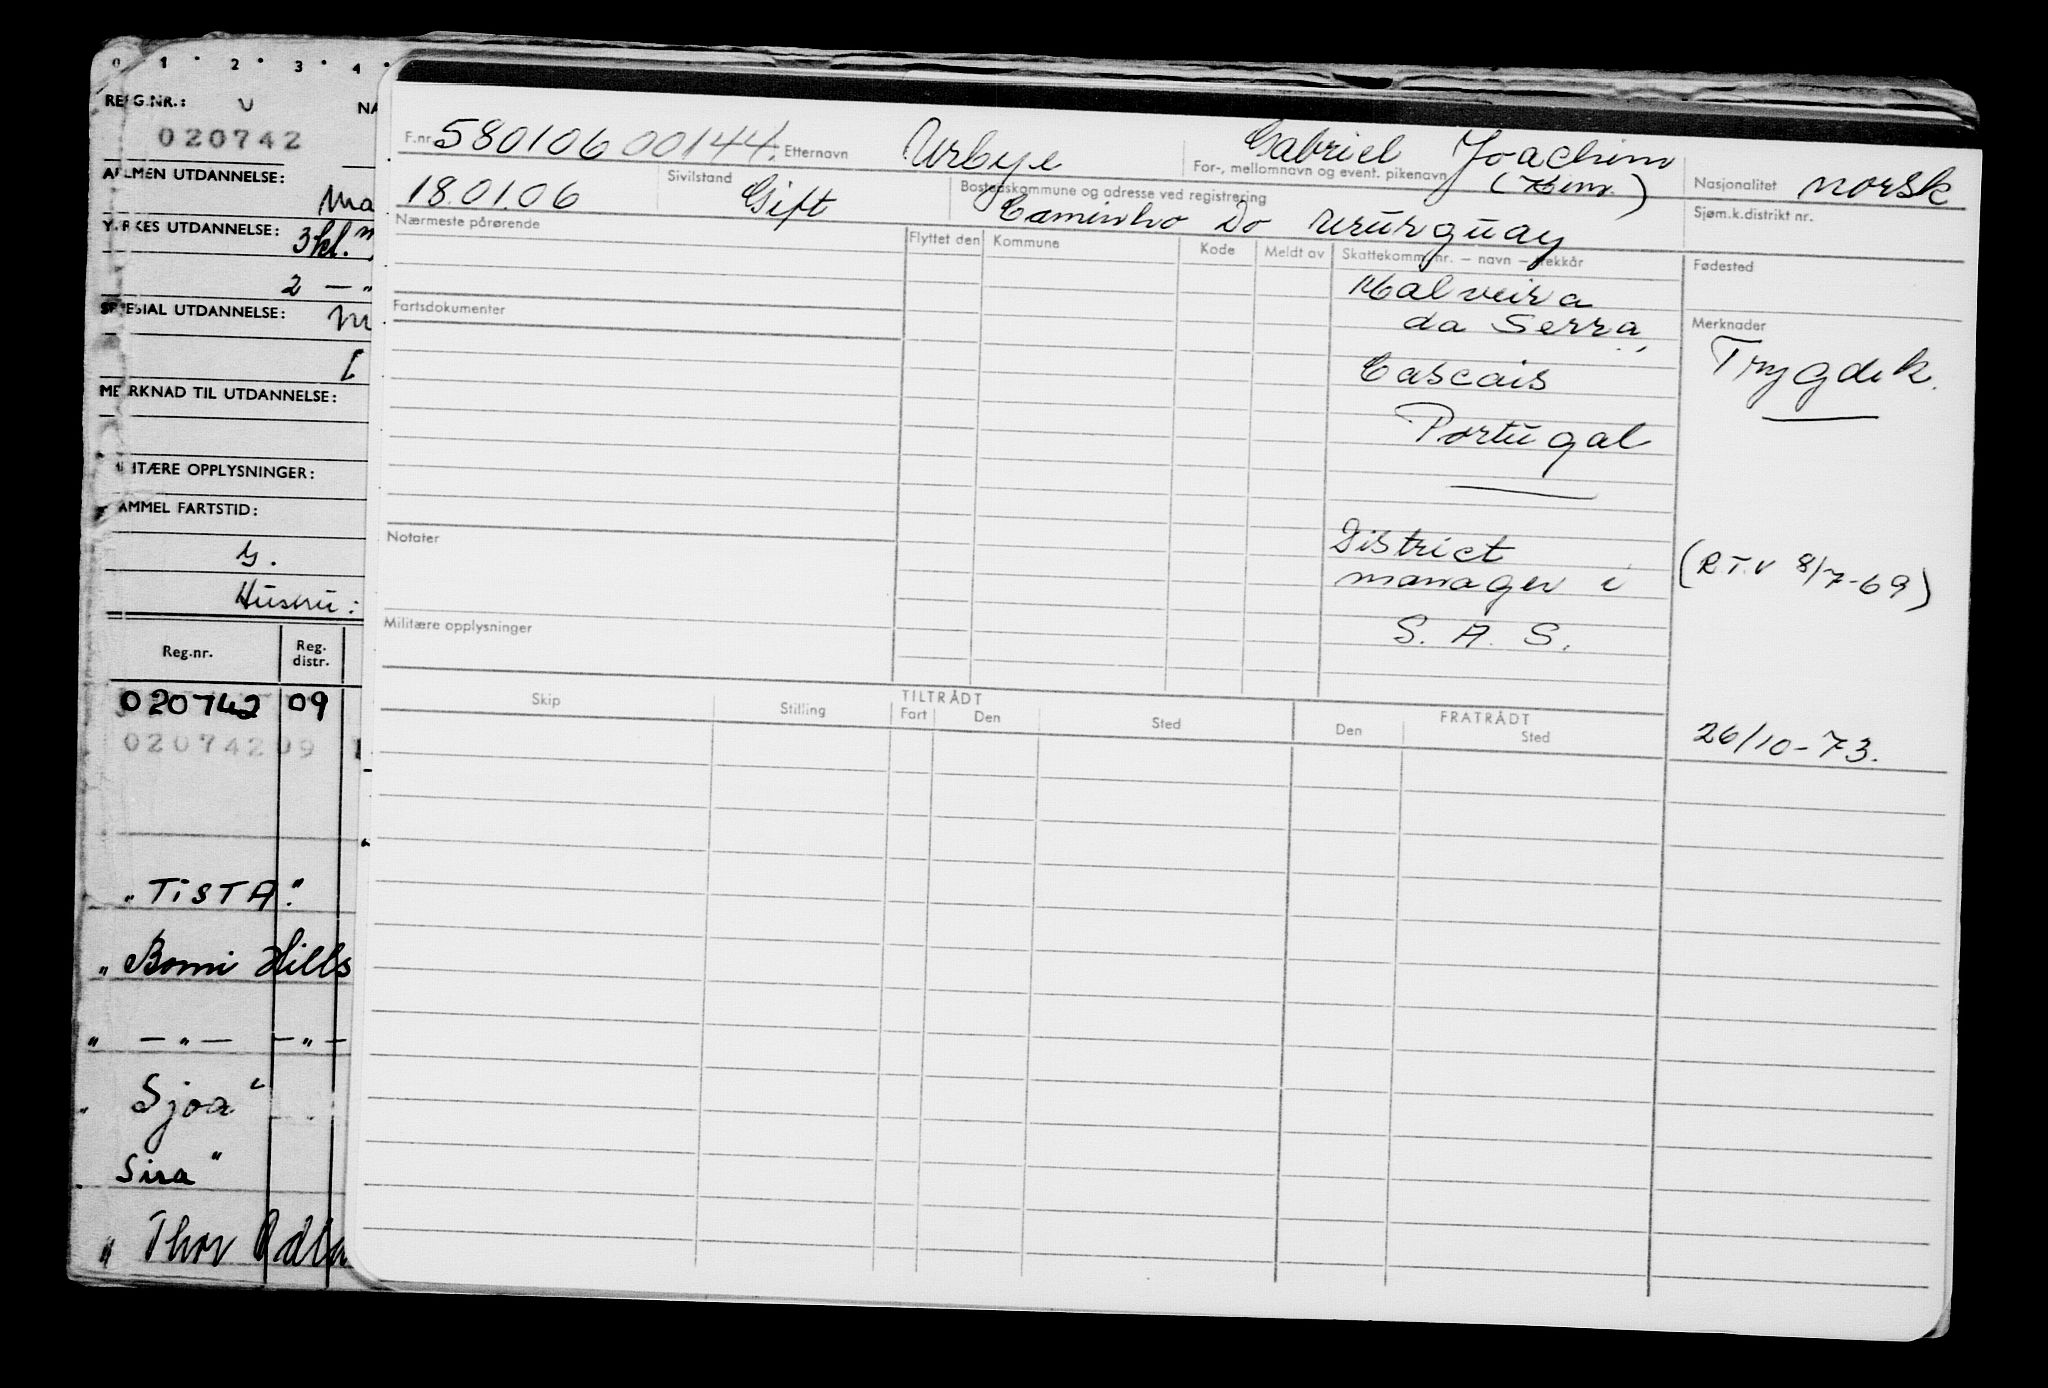 0 1 2 3 4
REG.NR.: NA
020742
ALLMEN UTDANNELSE:
YRKES UTDANNELSE: 3kl.
2 — "
SPESIAL UTDANNELSE:
MERKNAD TIL UTDANNELSE:
MILITÆRE OPPLYSNINGER:
GAMMEL FARTSTID:
G.
Hustru:
Reg.nr. Reg. distr.
020742 09
02074209
"TISTA"
"Bomi Hills
" — " — — " —
" Sjoa"
" Sira"
" Thor Odla
F.nr. 580106 00144. Etternavn Urbye For-, mellomnavn og event. pikenavn Gabriel Joachim
(Kim) Nasjonalitet norsk
18.01.06 Sivilstand Gift Bostedskommune og adresse ved registrering Caminho Do Ururguay Sjøm.k.distrikt nr.
Nærmeste pårørende Flyttet den Kommune Kode Meldt av Skattekomm.nr. — navn — trekkår Fødested
Malveira
da Serra,
Fartsdokumenter Merknader
Cascais Trygdek.
Portugal
Notater
District
manager i (R.T.V 8/7-69)
S. A. S.
Militære opplysninger
Skip Stilling TILTRÅDT FRATRÅDT
Fart Den Sted Den Sted
26/10-73.